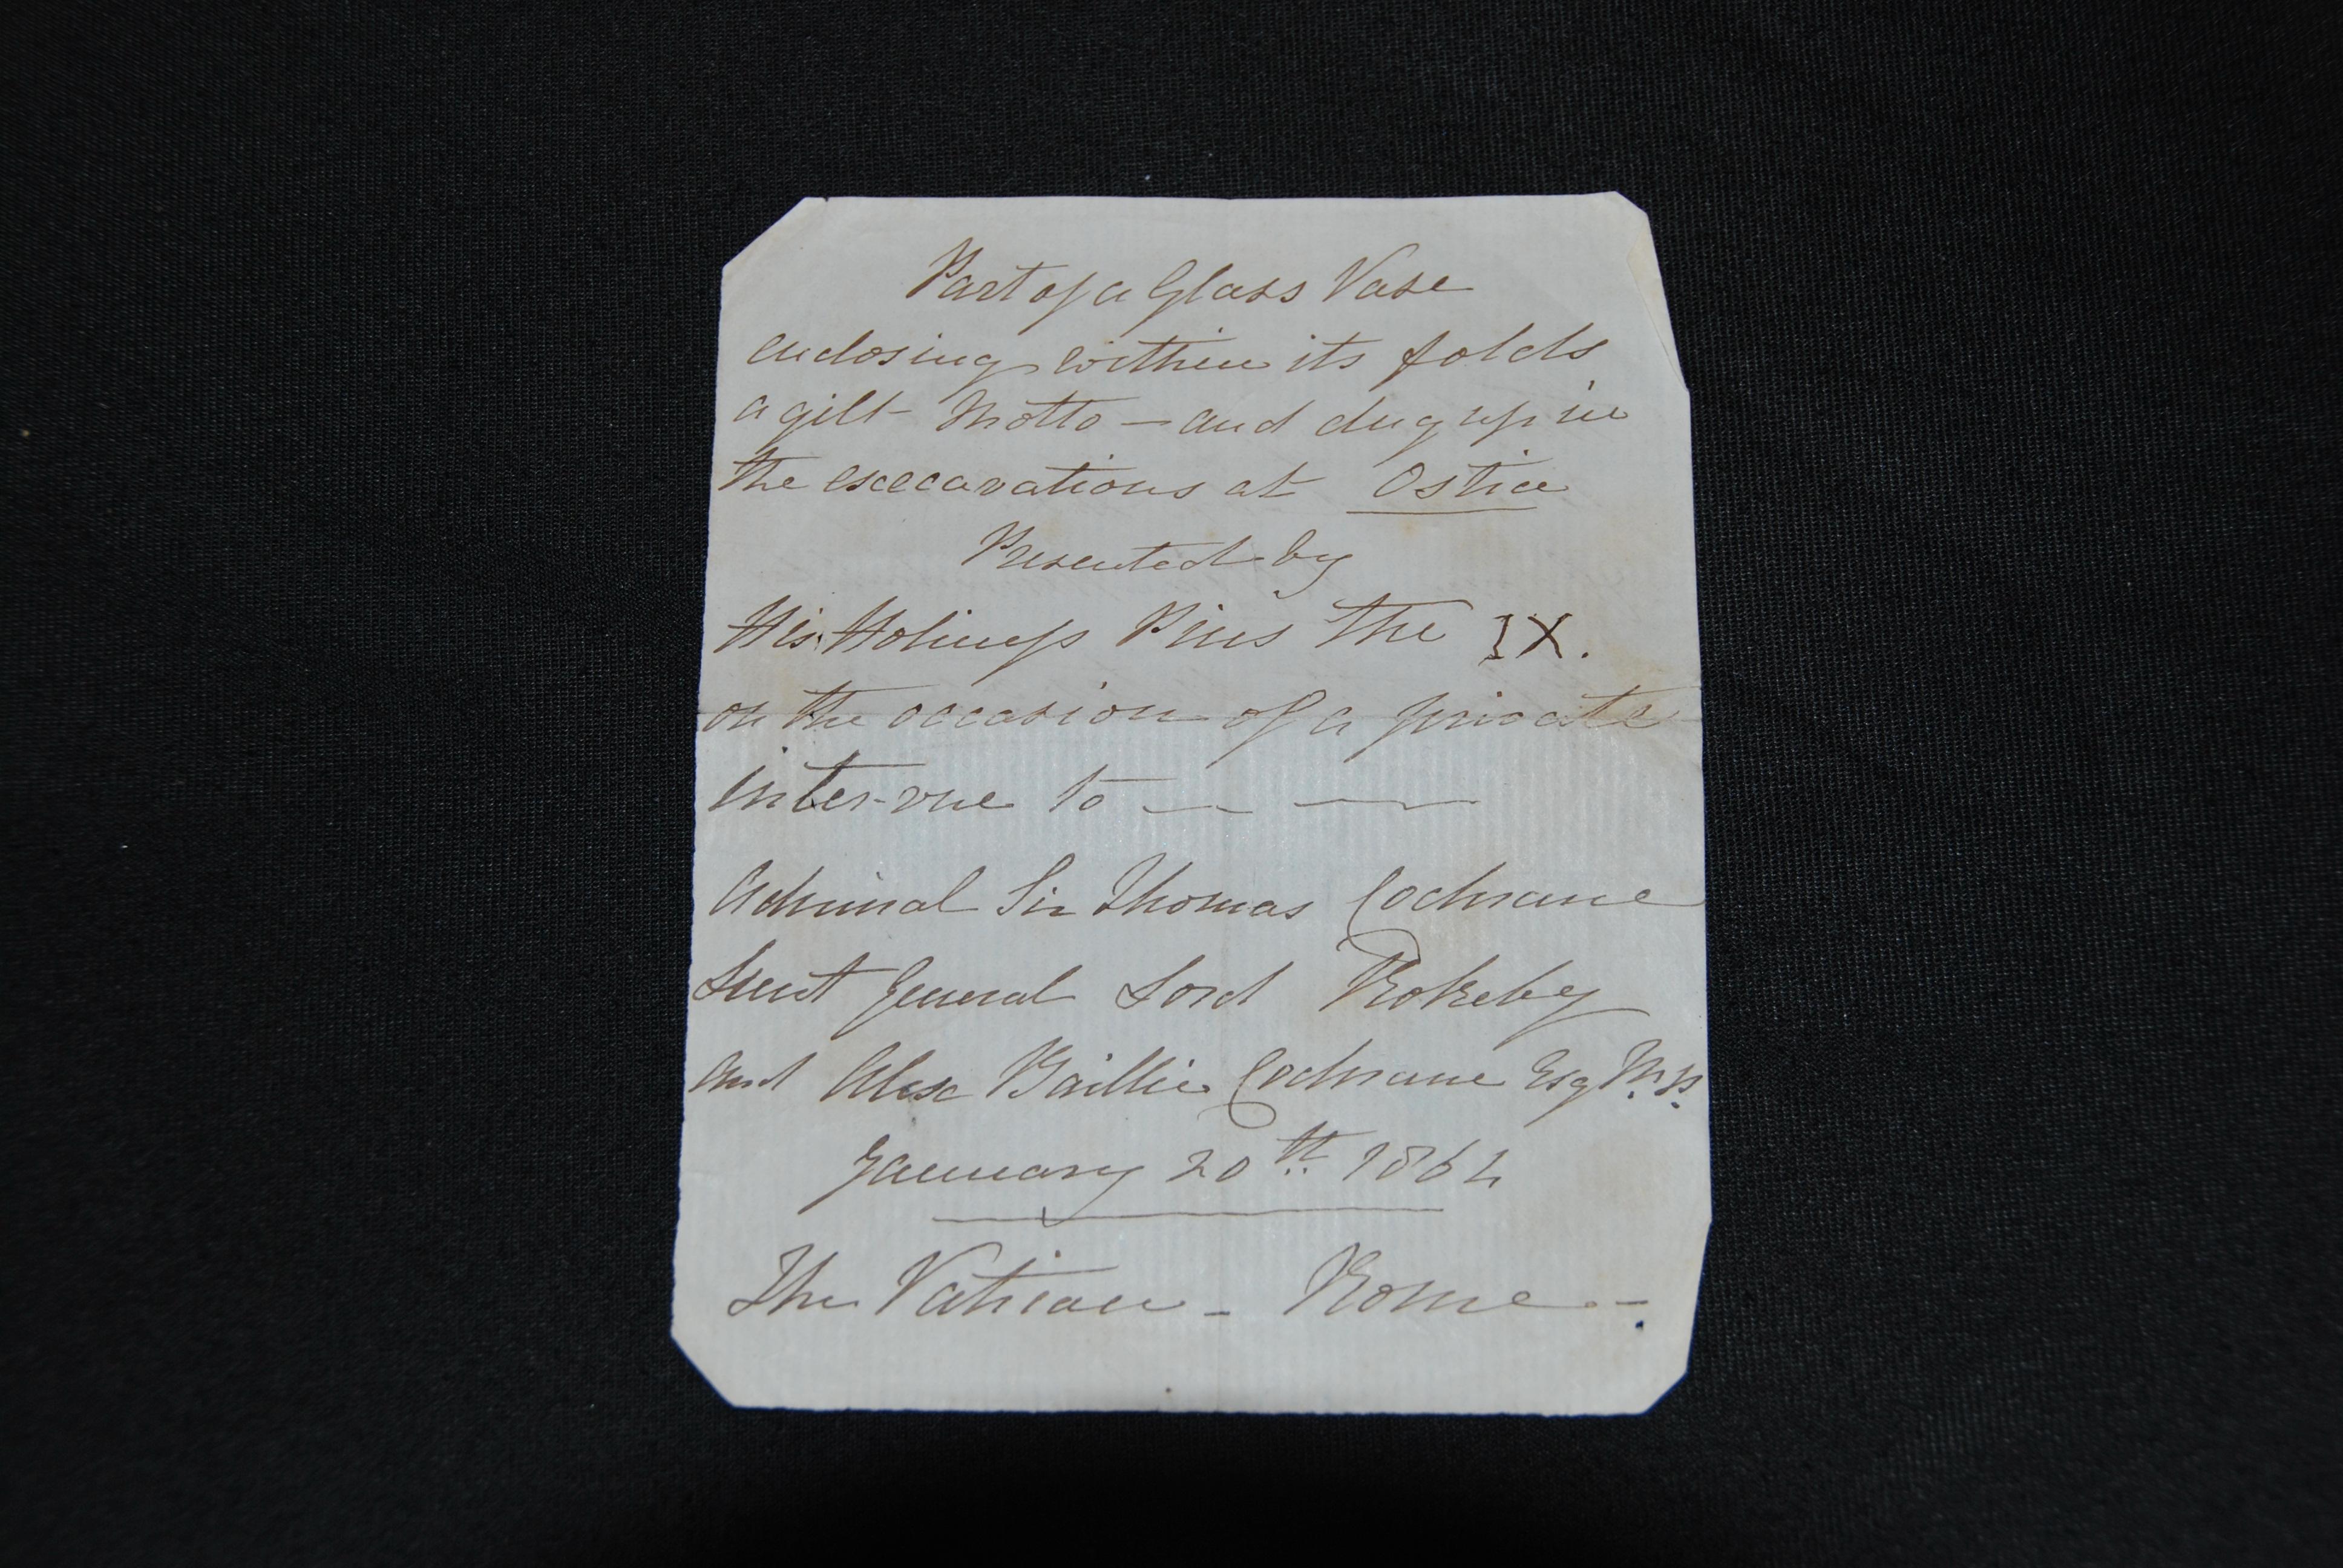 Part of a Glass Vase
enclosing within its folds
a gilt Motto — and dug up in
the esccavations at Ostia
Presented by
His Holiness Pius The IX.
on the occasion of a private
inter-vue to — —
Admiral Sir Thomas Cochrane
Lieut General Lord Rokeby
and Alex Baillie Cochrane Esq M.P.
January 20th 1864
The Vatican - Rome -